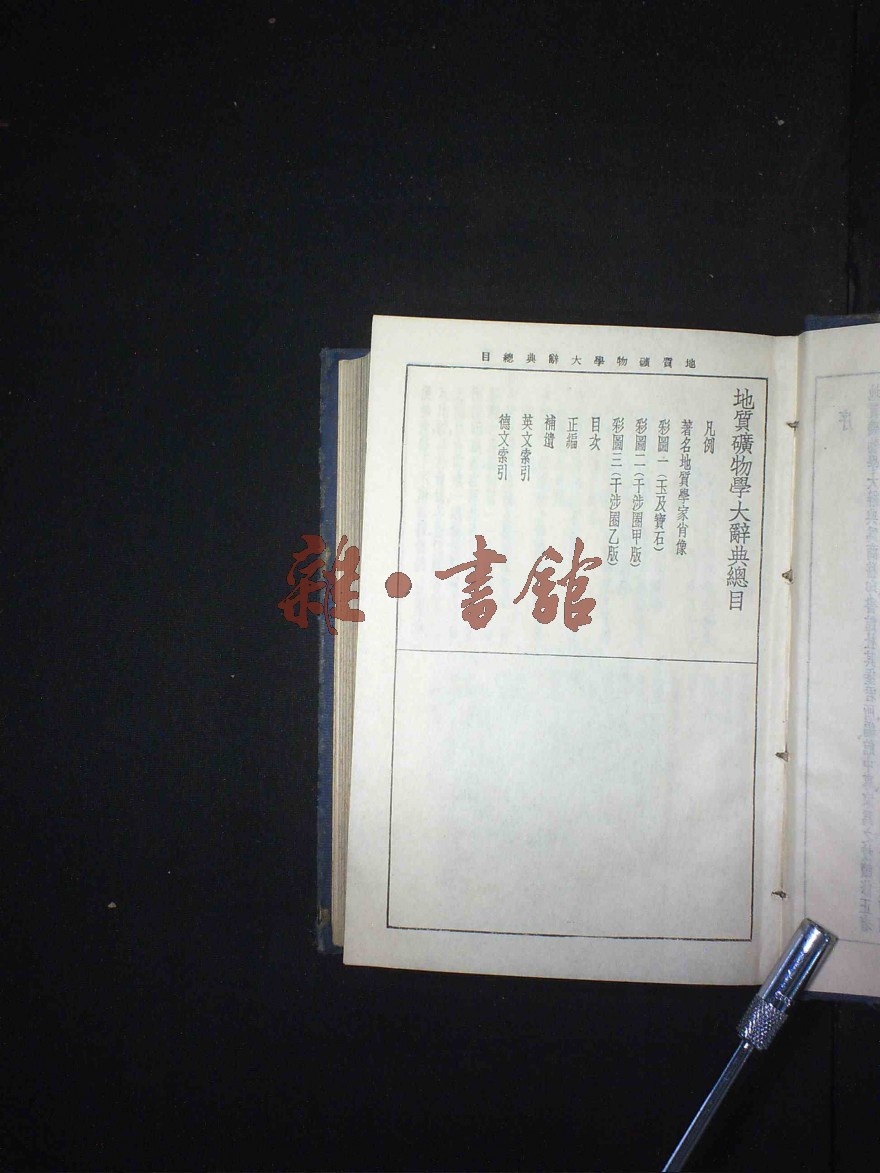 地質礦物學大辭典總目
地質礦物學大辭典總目
凡例
著名地質學家肖像
彩圖一（玉及寶石）
彩圖二（干涉圈甲版）
彩圖三（干涉圈乙版）
目次
正編
補遺
英文索引
德文索引
雜·書館
序